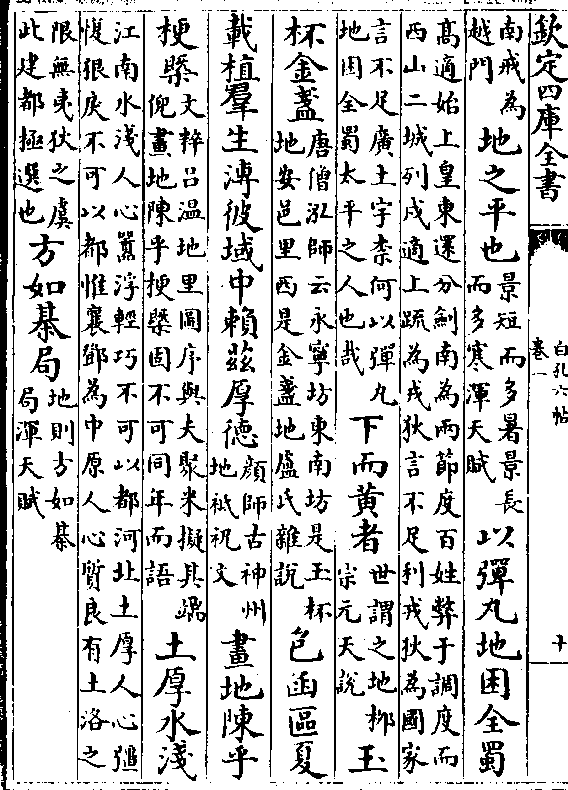 欽定四庫全書
白孔六帖
卷一
十
南戒為
越門
地之平也
景短而多暑景長
而多寒渾天賦
以彈丸地困全蜀
高適始上皇東還分劍南為兩節度百姓弊于調度而
西山二城列戍適上䟽為戎狄言不足利戎狄為國家
言不足廣土宇柰何以彈丸
地困全蜀太平之人也哉
下而黃者
世謂之地柳
宗元天說
玉
杯金盞
唐僧泓師云永寧坊東南坊是玉杯
地安邑里西是金盞地盧氏雜說
包函區夏
載植羣生溥彼域中賴茲厚德
顔師古神州
地祇祝文
畫地陳乎
梗槩
文粹吕温地里圖序與夫聚米擬其端
倪畫地陳乎梗槩固不可同年而語
土厚水淺
江南水淺人心囂浮輕巧不可以都河北土厚人心彊
愎狠戾不可以都惟襄鄧為中原人心質良有土洛之
限無夷狄之虞
此建都極選也
方如棊局
地則方如棊
局渾天賦